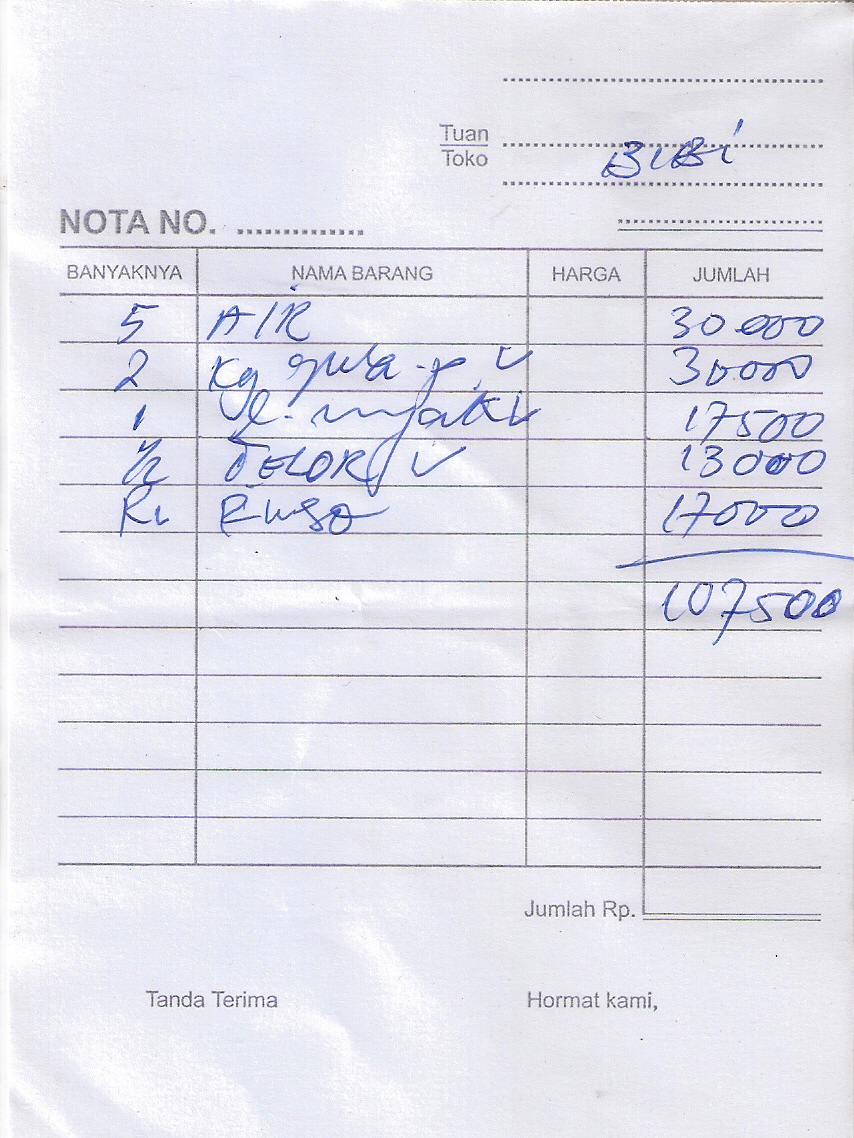 Tuan
Toko
BIBI
NOTA NO. ..............
BANYAKNYA NAMA BARANG HARGA JUMLAH
5 AIR 30 000
2 kg gula - p. ✓ 30000
1 17500
1/2 TELOR ✓ 13000
17000
107500
Jumlah Rp.
Tanda Terima Hormat kami,